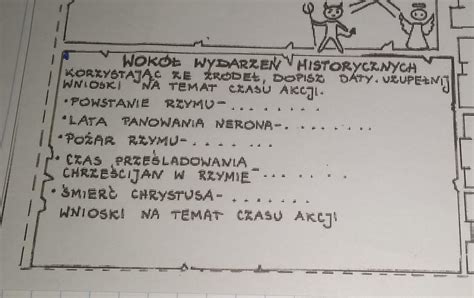 WOKÓŁ WYDARZEŃ HISTORYCZNYCH
KORZYSTAJĄC ZE ŹRÓDEŁ, DOPISZ DATY. UZUPEŁNIJ
WNIOSKI NA TEMAT CZASU AKCJI.
• POWSTANIE RZYMU- . . . . . . .
• LATA PANOWANIA NERONA- . . . . . . .
• POŻAR RZYMU- . . . . . . .
• CZAS PRZEŚLADOWANIA
CHRZEŚCIJAN W RZYMIE- . . . . . . .
• ŚMIERĆ CHRYSTUSA- . . . . . . .
WNIOSKI NA TEMAT CZASU AKCJI